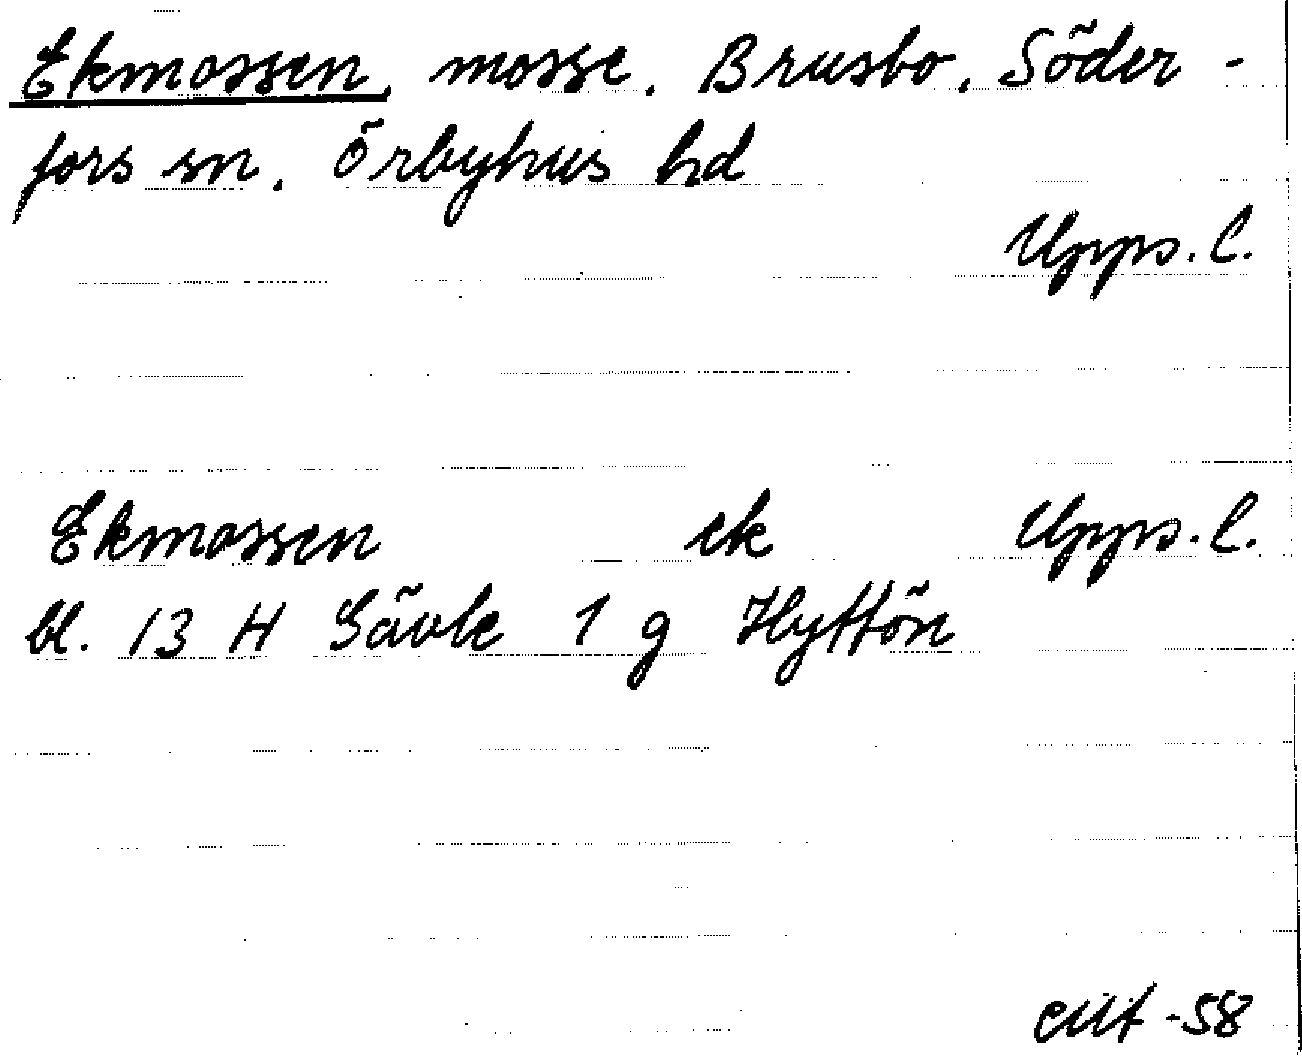 Ekmossen, mosse. Brusbo. Söder-
fors sn. Örbyhus hd
Upps. l.
Ekmossen ek Upps. l.
bl. 13 H Gävle 1 g Hyttön
-58